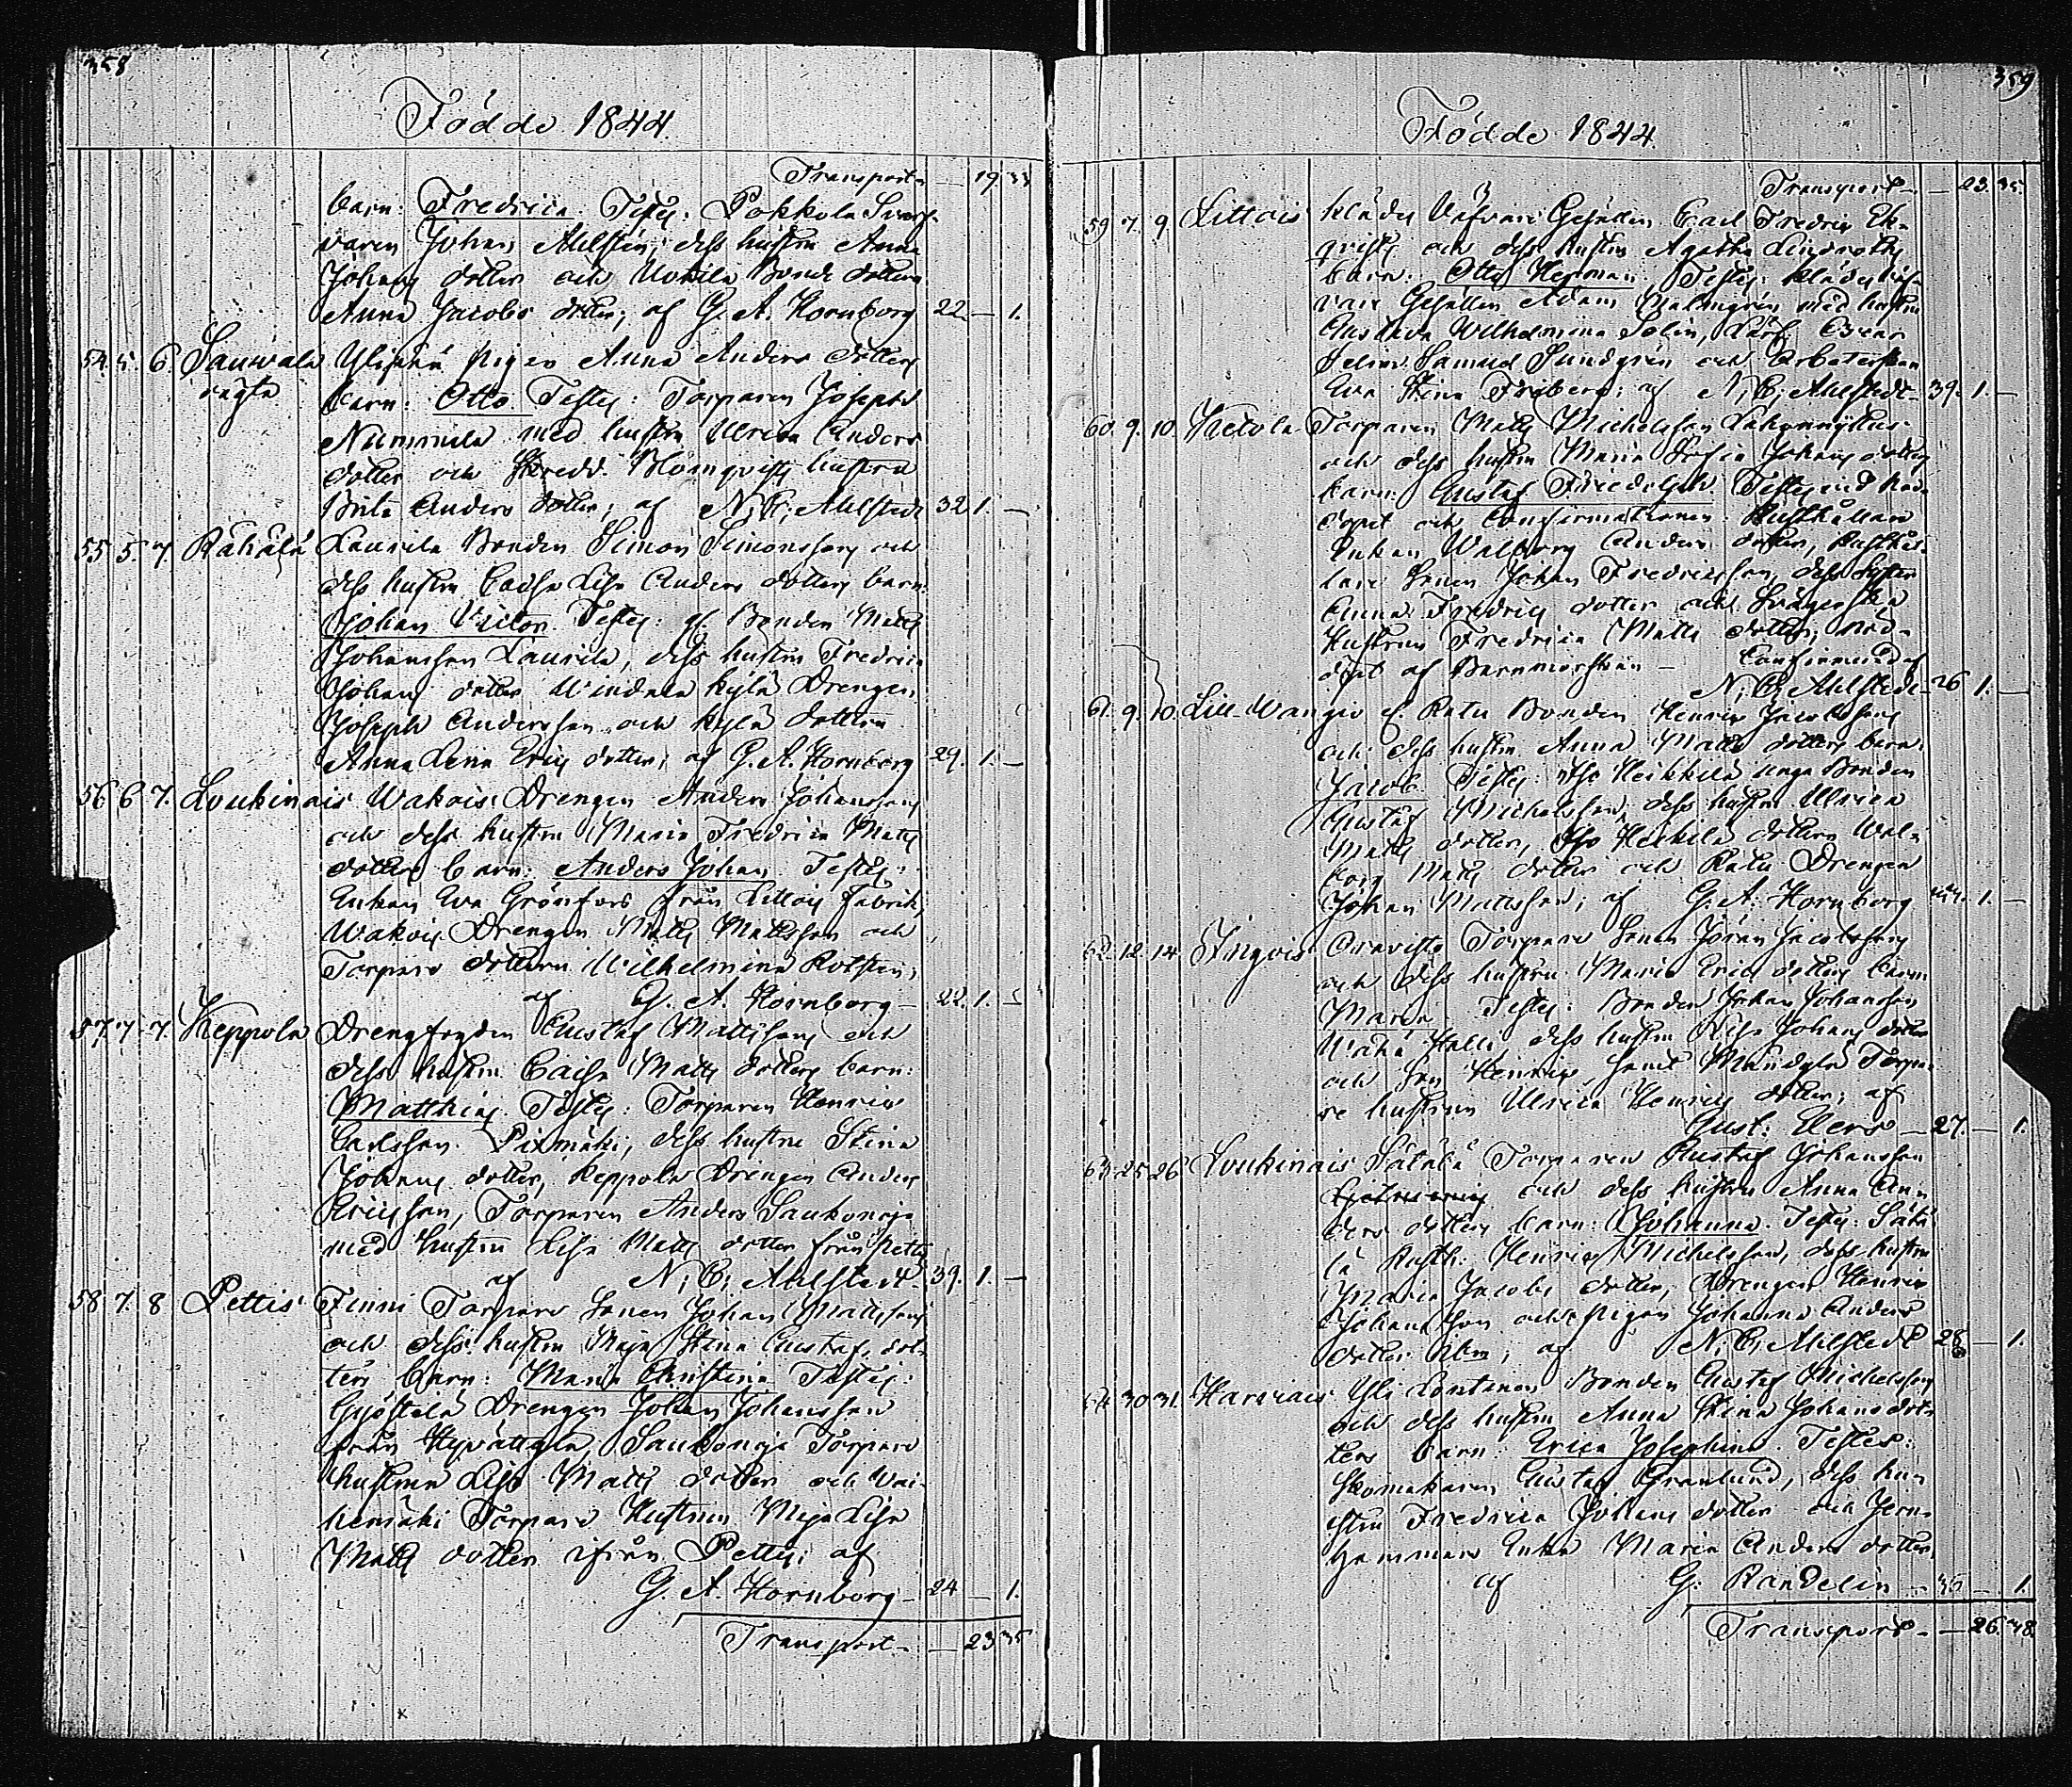 358
Födde 1844.
Transport — 19. 33
barn: Fredrica. Testes: Pokkola
varen Johan Ahlsten, dess hustru Anna
Johans dotter och Uotila Bonde dottern
Anna Jacobs dotter; af G. A. Hornborg 22. — 1.
54. 5. 6. Sauwala Ylipää pigan Anna Anders dotters
barn: Otto. Testes: Torparen Joseph
Nummila med hustru Ulrica Anders
dotter och Skredd. Blomqvists hustru
Brita Anders dotter; af N. C. Ahlstedt 32. 1. —
55. 5. 7. Rähälä Laurila Bonden Simon Simonsson och
dess hustru Caisa Lisa Anders dotters barn:
Johan Victor. Testes: Bonden Matts
Johansson Laurila, dess hustru Fredrica
Johans dotter Kylä Drengen
Joseph Andersson och Kylä dottern
Anna Lena Erics dotter; af G. A. Hornborg 29. 1. —
56. 6. 7. Loukinais Wakois Drengen Anders Johanssons
och dess hustru Maria Fredrica Matts
dotters barn: Anders Johan. Testes:
Enkan Eva Grönfors från Littois fabrik,
Wakois Drengen Matts Mattsson och
Torpare dottern Wilhelmina
af G. A. Hornborg — 22. 1. —
57. 7. 7. Keppola Drengfogden Gustaf Mattssons och
dess hustru Caisa Matts dotters barn:
Matthias. Testes: Torparen Henric
Carlsson Pitmäki, dess hustru Stina
Johans dotter, Keppola Drengen Anders
Ericsson, Torparen Anders Saukonoja
med hustru Lisa Matts dotter från Pettis
af N. C. Ahlstedt 39. 1. —
58. 7. 8. Pettis Finni Torpare Sonen Johan Mattssons
och dess hustru Maja Stina Gustafs dot-
ters barn: Maria Christina. Testes:
Drengen Johan Johansson
från Saukonoja Torpare
hustrun Lisa Matts dotter och
Torpare Hustrun Maja Lisa
Matts dotter ifrån Pettis; af
G. A. Hornborg — 24 — 1.
Transport — 23. 35
359
Födde 1844.
Transport — 23. 35.
59. 7. 9. Littois Klädes Väfvare Gesällen Carl Fredric Ek-
qvists och dess hustru Agatha Lindroths
barn: Otto Herman. Testes: Klädesväf-
vare Gesällen Adam Malmgrén med hustru
Gustava Wilhelmina
Samuel Sundgrén och Arbetarskan
Eva Stina Friberg; af N. C. Ahlstedt 39. 1. —
60. 9. 10. Ketola Torparen Matts Michelsson
och dess hustru Maria Sofia Johans dotters
barn: Gustaf Fridolph. Testes vid nöd-
dopet och Confirmationen: Rusthållare
Enkan Walborg Anders dotter, Rusthål-
lare Sonen Johan Fredricsson, dess syster
Anna Fredrics dotter och Svägerska
Hustrun Fredrica Matts dotter; nöd-
döpt af Barnmorskan — Confirmerad af
N. C. Ahlstedt 26 1. —
61. 9. 10. Lill-Wangio Ratu Bonden Henric Jacobssons
och dess hustru Anna Matts dotters barn:
Jacob. Testes: Iso Heikkilä unga Bonden
Gustaf Michelsson, dess hustru Ulrica
Matts dotter, Iso Heikkilä dottern Wal-
borg Matts dotter och Ratu Drengen
Johan Mattsson; af G. A. Hornborg 44. 1. —
62. 12. 14. Ingois Torpare Sonen Jöran Jacobssons
och dess hustru Maria Erics dotters barn
Maria. Testes: Bonden Johan Johansson
Wähä Halli dess hustru Lisa Johans dotter
och Son Henric, samt Torpa-
re hustrun Ulrica Henrics dotter; af
Gust: Elers — 27. — 1.
63. 25. 26. Loukinais Säkälä Torparen Gustaf Johansson
och dess hustru Anna An-
ders dotters barn: Johanna. Testes: Säkä-
lä Rusth: Henric Michelsson, dess hustru
Maria Jacobs dotter, Drengen Henric
Johansson och pigan Johanna Anders
dotter; af N. C. Ahlstedt 28 — 1.
64. 30. 31. Harvais Yli Lontinen Bonden Gustaf Michelssons
och dess hustru Anna Stina Johans dot-
ters barn: Erica Josephina. Testes:
Skomakaren Gustaf Granlund, dess hu-
stru Fredrica Johans dotter och
Enka Maria Anders dotter
af G: Randelin — 35 — 1.
Transport — 26. 48.